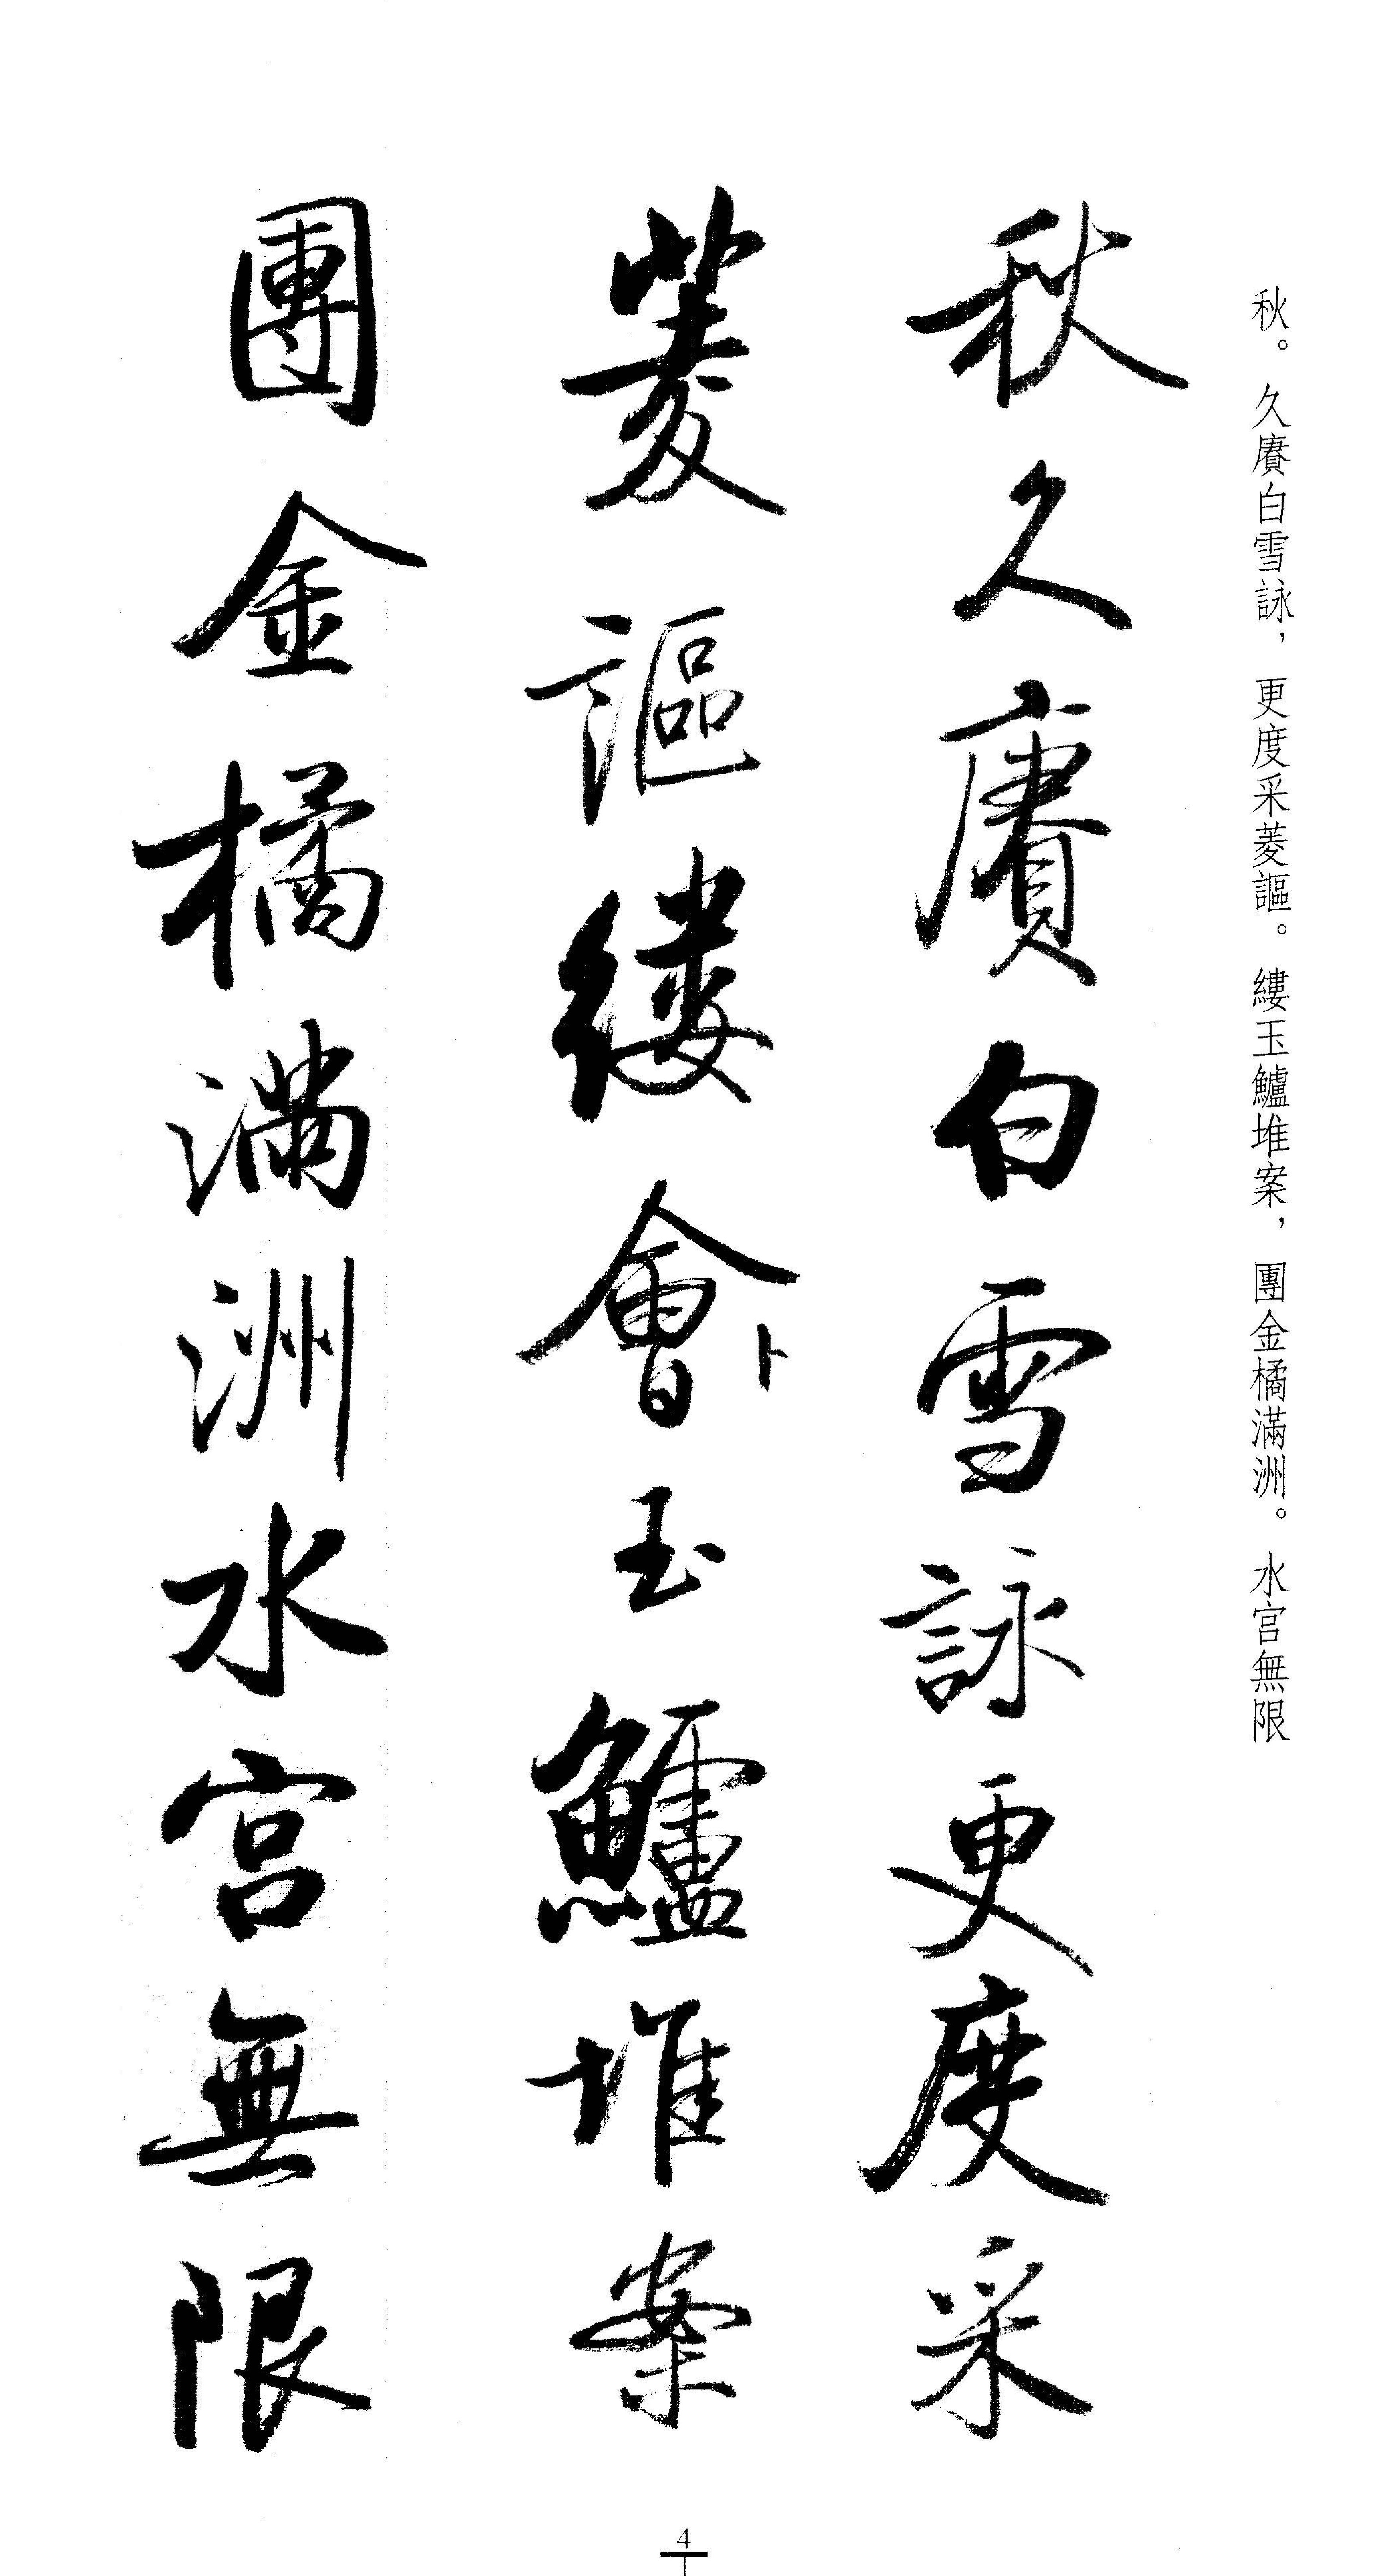 秋。久賡白雪詠，更度采菱謳。縷玉鱸堆案，團金橘滿洲。水宮無限
秋久賡白雪詠更度采
菱謳縷會卜玉鱸堆案
團金橘滿洲水宮無限
4